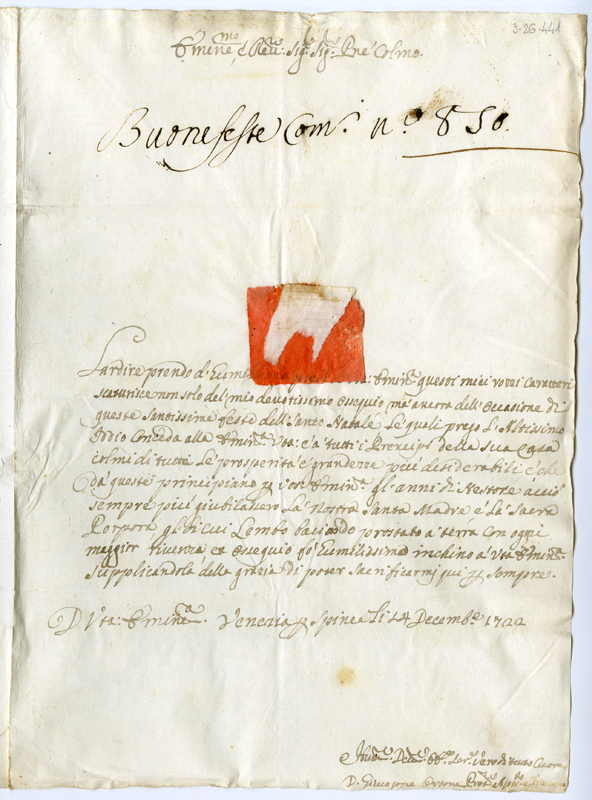 3-26-441
Emin.mo e Reu.o Sig.r Sig.r Pne Colmo.
Buone feste Com.i n.o 850.
L'ardire prendo d'humi Emin.a questi miei rozzi Caratteri
scaturisce non solo del mio devotissimo ossequio mà ancora dell'occasione di
queste Santissime feste dell Santo Natale Le quali prego L'Altissimo
Iddio Conceda alla Emin.a Vta: è à tutti i Prencipi della sua Casa
colmi di tutte Le prosperità è grandezze più desiderabili è che
da queste principiano p Emin.a gl'anni di Nestore acciò
sempre più giubilassero La Nostra Santa Madre è La Sacra
Porpora gl cui Lembo baciando prostato a terra con ogni
maggior riverenza et ossequio fo humilissimo inchino à Vta Emin.a
supplicandola della grazia di poter sacrificarmi qui p sempre.
D Vta: Emin.a Venezia p Spinea li 14 Decemb.e 1722
Humil.mo Deu.mo Ser.e Vero di tutto Cuore
D.